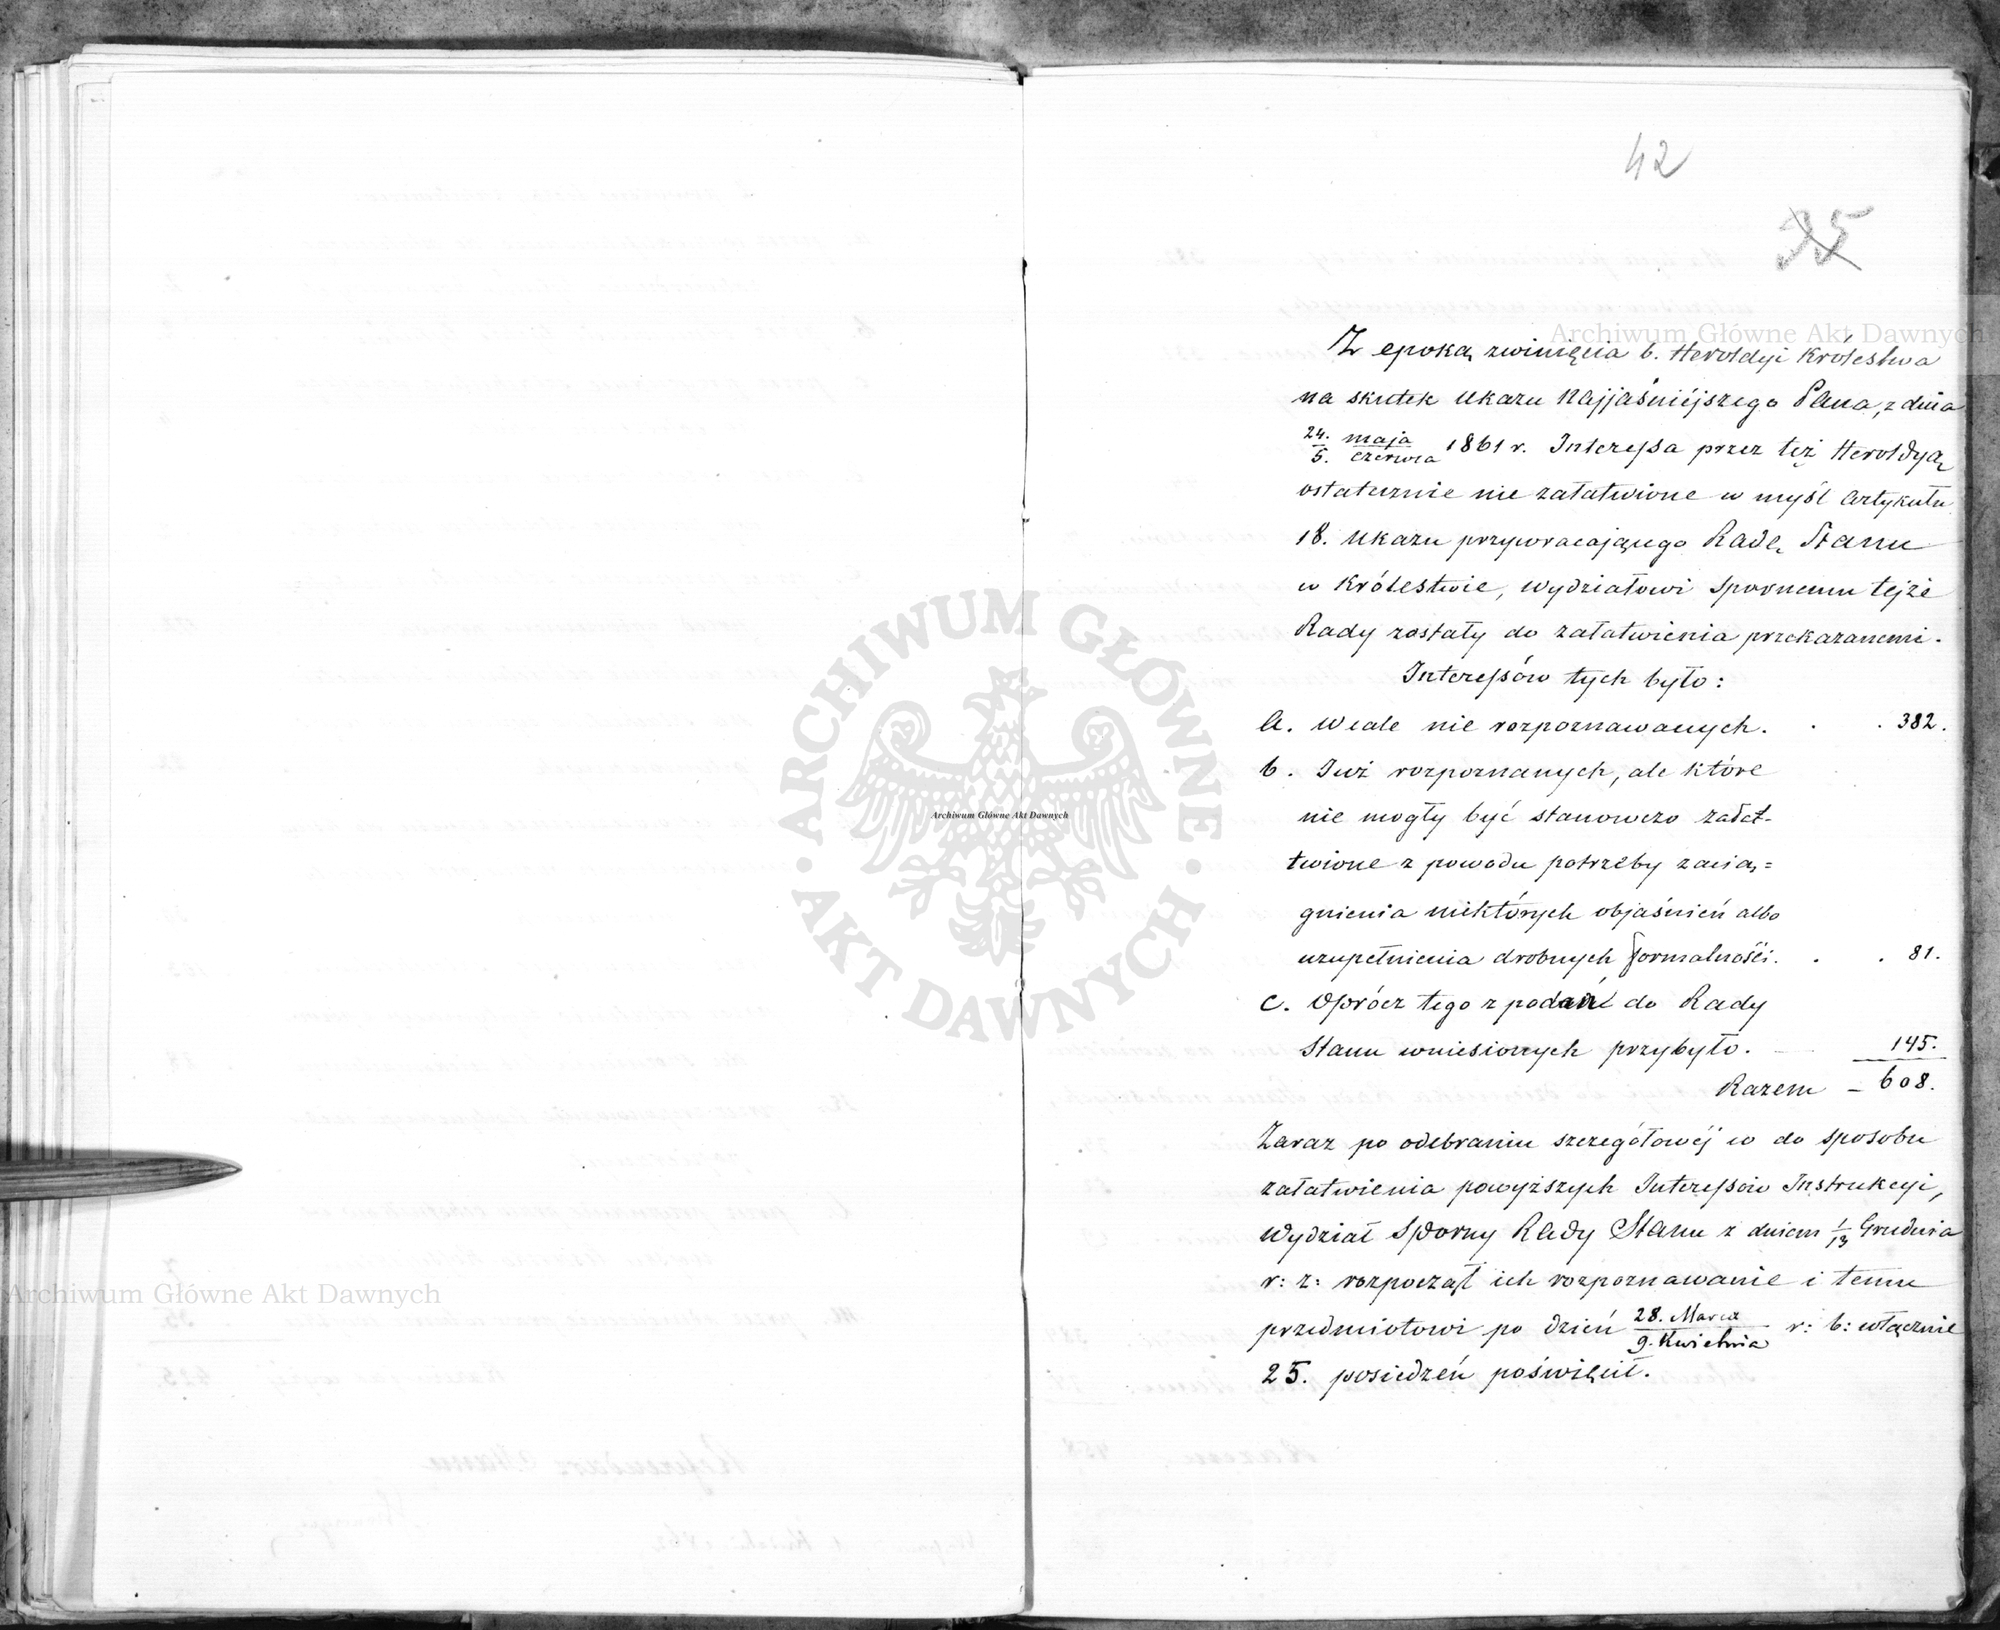 42
35
Z epoką zwinięcia b. Heroldyi Królestwa
na skutek Ukazu Najjaśniéjszego Pana, z dnia
24. maja / 5. czerwca 1861 r. Interessa przez też Heroldyą
ostatecznie nie załatwione w myśl Artykułu
18. Ukazu przywracającego Radę Stanu
w Królestwie, Wydziałowi Spornemu tejże
Rady zostały do załatwienia przekazanemi.
Interessów tych było:
a. Wcale nie rozpoznawanych. . . 382.
b. Już rozpoznanych, ale które
nie mogły być stanowczo załat-
twione z powodu potrzeby zacią=
gnienia niektórych objaśnień albo
uzupełnienia drobnych formalności. . . 81.
c. Oprócz tego z podań do Rady
Stanu wniesionych przybyło. — 145.
Razem — 608.
Zaraz po odebraniu szczegółowéj co do sposobu
załatwienia powyższych Interessów Instrukcyi,
Wydział Sporny Rady Stanu z dniem 1/13 Grudnia
r: z: rozpoczął ich rozpoznawanie i temu
przedmiotowi po dzień 28. Marca / 9. Kwietnia r: b: włącznie
25. posiedzeń poświęcił.
Archiwum Główne Akt Dawnych
Archiwum Główne Akt Dawnych
Archiwum Główne Akt Dawnych
ARCHIWUM GŁÓWNE · AKT DAWNYCH ·